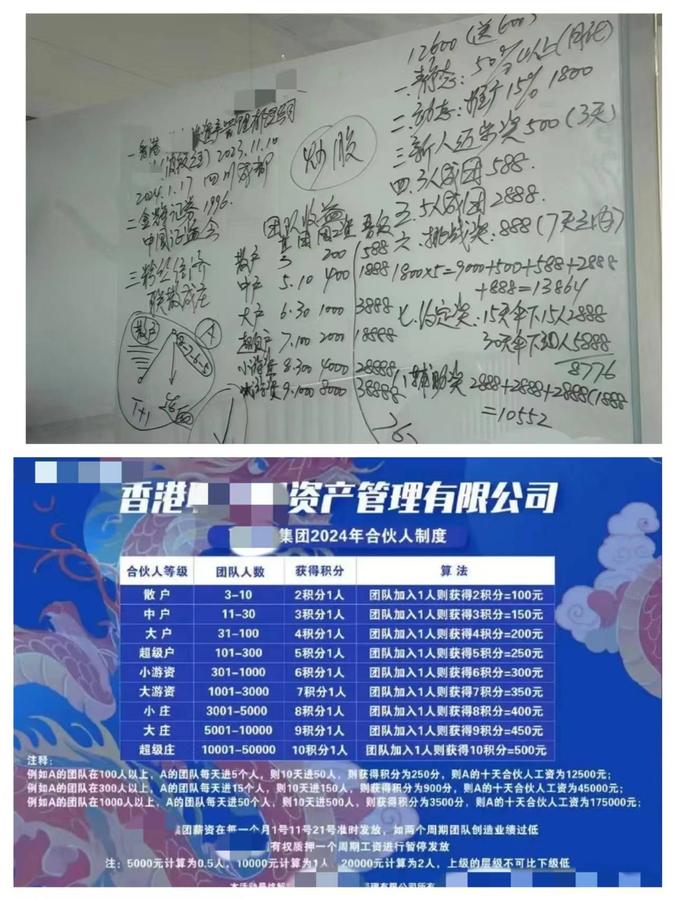 12600（送600）
一静态：50%以上（月化）
二.动态：推广15% 1800
三新人迈步奖500（3天）
四.3人成团588.
五 5人成团2888.
六.挑战奖：888（7天之内）
1800×5=9000+500+588+2888
+888=13864
七.约定奖.15天伞下15人2888
30天伞下30人5888
8776
八辅助奖 2888+2888+2888(1888
=10552
一香港
2023.11.10
2024.1.17 四川成都
二金 证券1996.
中国证监会
三 粉丝经济
联散成庄
散户
A
T+1
炒股
团队收益
散户 3 200 588
中户 5.10 400 1888
大户 6.30 1000 3888
超级户 7.100 2000 18888
小游资 8.300 4000 28888
游资 9.1000 8000 38888
香港 资产管理有限公司
集团2024年合伙人制度
合伙人等级 团队人数 获得积分 算法
散户 3-10 2积分1人 团队加入1人则获得2积分=100元
中户 11-30 3积分1人 团队加入1人则获得3积分=150元
大户 31-100 4积分1人 团队加入1人则获得4积分=200元
超级户 101-300 5积分1人 团队加入1人则获得5积分=250元
小游资 301-1000 6积分1人 团队加入1人则获得6积分=300元
大游资 1001-3000 7积分1人 团队加入1人则获得7积分=350元
小庄 3001-5000 8积分1人 团队加入1人则获得8积分=400元
大庄 5001-10000 9积分1人 团队加入1人则获得9积分=450元
超级庄 10001-50000 10积分1人 团队加入1人则获得10积分=500元
注释：
例如A的团队在100人以上，A的团队每天进5个人，则10天进50人，则获得积分为250分，则A的十天合伙人工资为12500元；
例如A的团队在300人以上，A的团队每天进15个人，则10天进150人，则获得积分为900分，则A的十天合伙人工资为45000元；
例如A的团队在1000人以上，A的团队每天进50个人，则10天进500人，则获得积分为3500分，则A的十天合伙人工资为175000元；
团薪资在每一个月1号11号21号准时发放，如两个周期团队创造业绩过低
有权质押一个周期工资进行暂停发放
注：5000元计算为0.5人，10000元计算为1人，20000元计算为2人，上级的层级不可比下级低